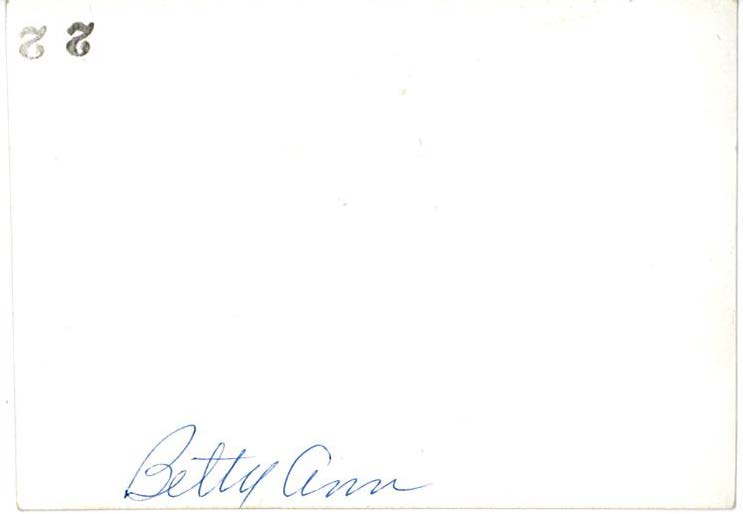 22
Betty Ann